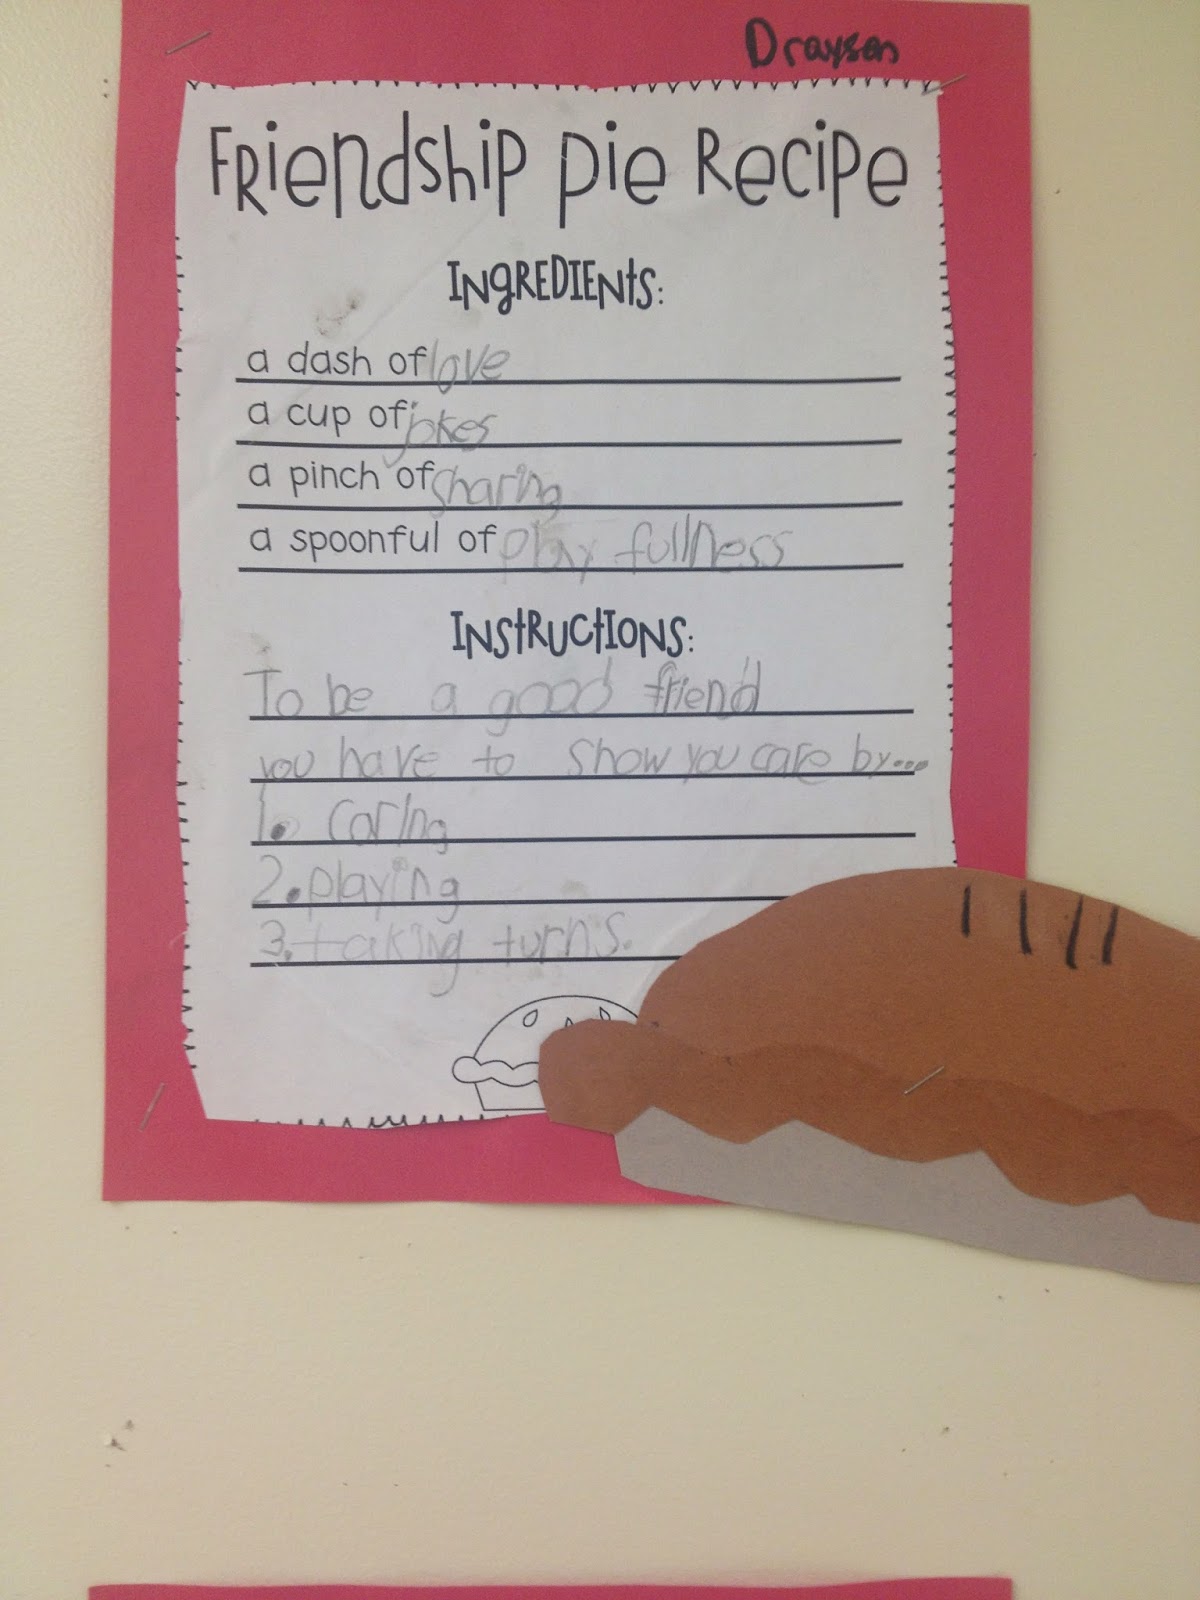 Draysen
Friendship Pie Recipe
Ingredients:
a dash of love
a cup of jokes
a pinch of sharing
a spoonful of play fullness
Instructions:
To be a good friend
you have to show you care by...
1. Caring
2. playing
3. taking turns.